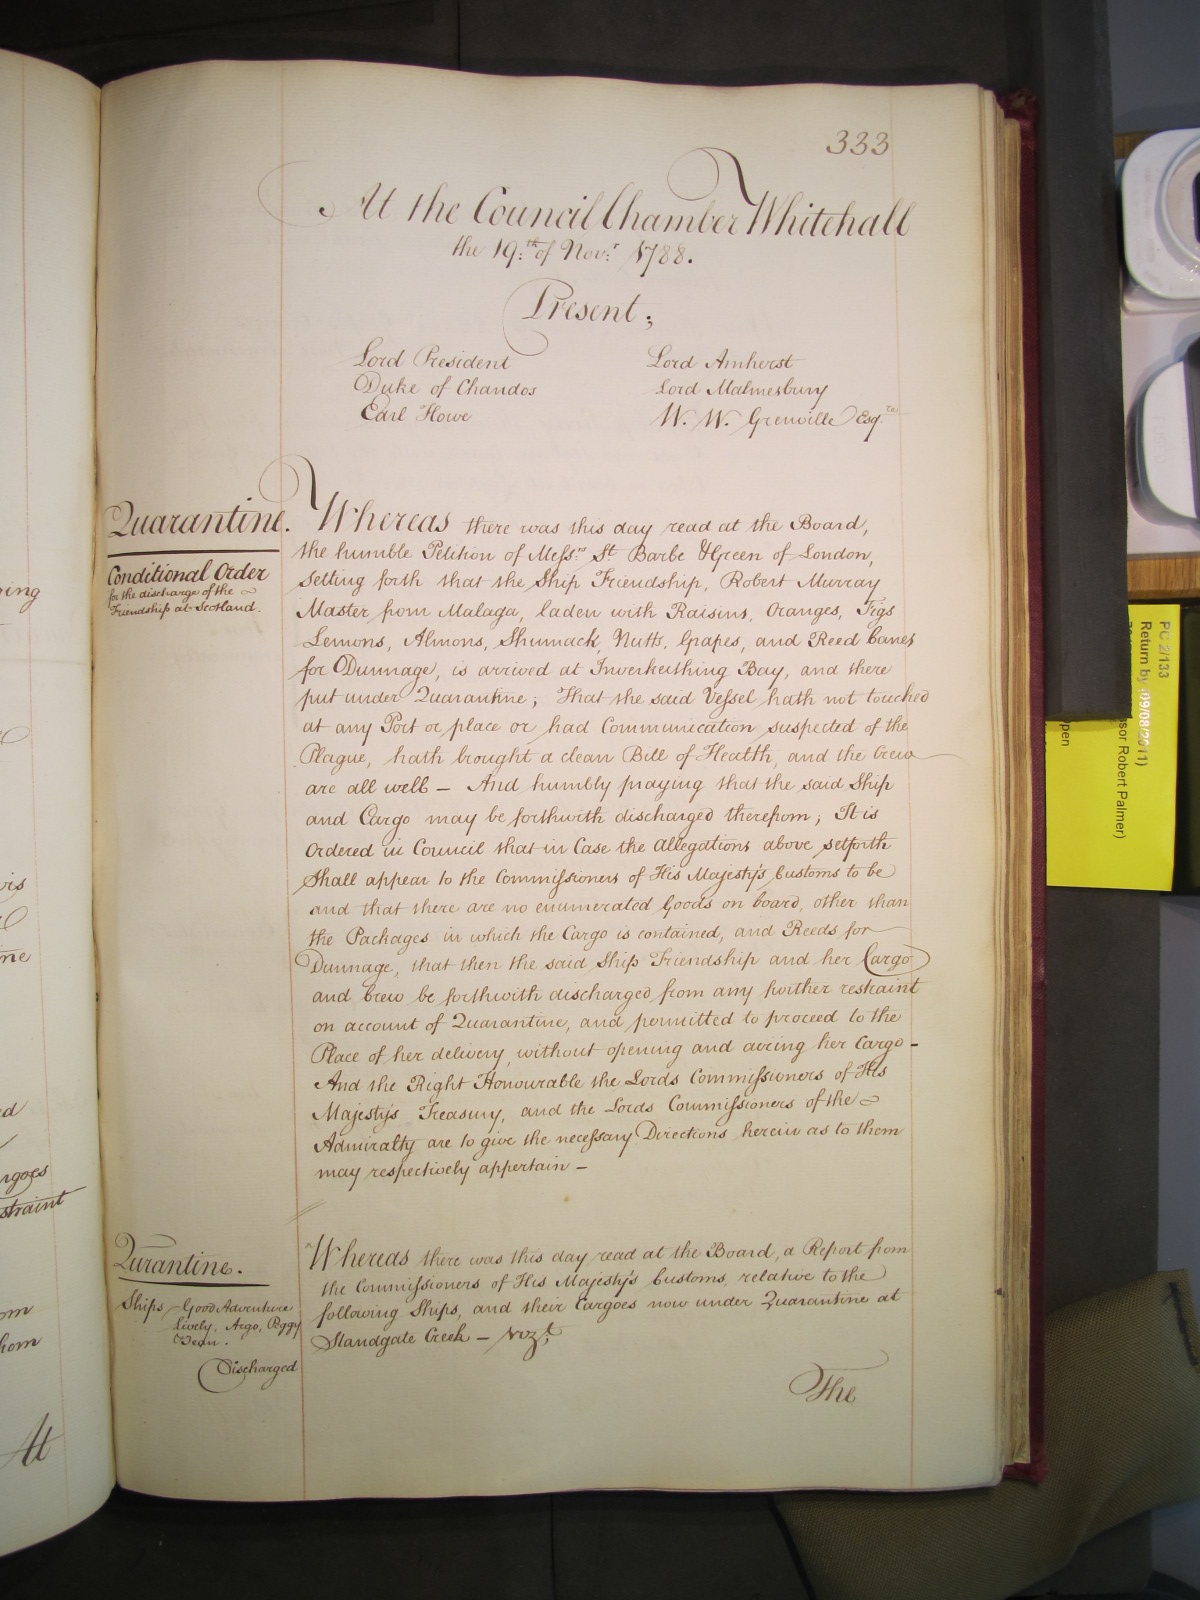 333
At the Council Chamber Whitehall
the 19.th of Nov.r 1788.
Present;
Lord President
Duke of Chandos
Earl Howe
Lord Amherst
Lord Malmesbury
W. W. Grenville Esq.re
Quarantine.
Conditional Order
for the discharge of the
Friendship at Scotland.
Whereas there was this day read at the Board,
the humble Petition of Mess.rs St Barbe & Green of London,
setting forth that the Ship Friendship, Robert Murray
Master from Malaga, laden with Raisins, Oranges, Figs
Lemons, Almons, Shumack, Nutts, Grapes, and Reed Canes
for Dunnage, is arrived at Inverkeithing Bay, and there
put under Quarantine; That the said Vessel hath not touched
at any Port or place or had Communication suspected of the
Plague, hath brought a clean Bill of Health, and the Crew
are all well — And humbly praying that the said Ship
and Cargo may be forthwith discharged therefrom; It is
Ordered in Council that in Case the Allegations above setforth
Shall appear to the Commissioners of His Majesty's Customs to be
and that there are no enumerated Goods on board, other than
the Packages in which the Cargo is contained, and Reeds for
Dunnage, that then the said Ship Friendship and her Cargo
and Crew be forthwith discharged from any further restraint
on account of Quarantine, and permitted to proceed to the
Place of her delivery, without opening and airing her Cargo —
And the Right Honourable the Lords Commissioners of His
Majesty's Treasury, and the Lords Commissioners of the
Admiralty are to give the necessary Directions herein as to them
may respectively appertain —
Qurantine.
Ships Good Adventure
Lively, Argo, Peggy
Jean.
Discharged
Whereas there was this day read at the Board, a Report from
the Commissioners of His Majesty's Customs, relative to the
following Ships, and their Cargoes now under Quarantine at
Standgate Creek — Vizt.
The
At
PC 2/133
Return by (09/08/2011)
ssor Robert Palmer)
pen